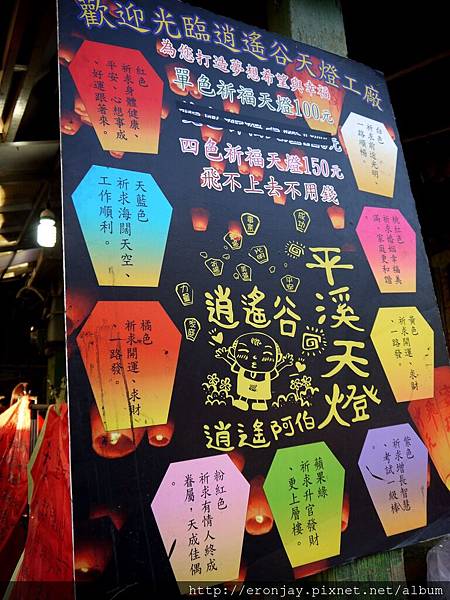 歡迎光臨逍遙谷天燈工廠
為您打造夢想希望與幸福
單色祈福天燈100元
四色祈福天燈150元
飛不上去不用錢
紅色
祈求身體健康、
平安、心想事成
、好運跟著來。
白色
祈求前途光明、
一路順暢
天藍色
祈求海闊天空、
工作順利。
桃紅色
祈求婚姻幸福美
滿，家庭更和諧
橘色
祈求開運、求財
、一路發。
黃色
祈求開運、求財
、一路發。
平溪天燈
逍遙谷
逍遙阿伯
粉紅色
祈求有情人終成
眷屬，天成佳偶
蘋果綠
祈求升官發財
、更上層樓。
紫色
祈求增長智慧
、考試一級棒
http://eronjay.pixnet.net/album